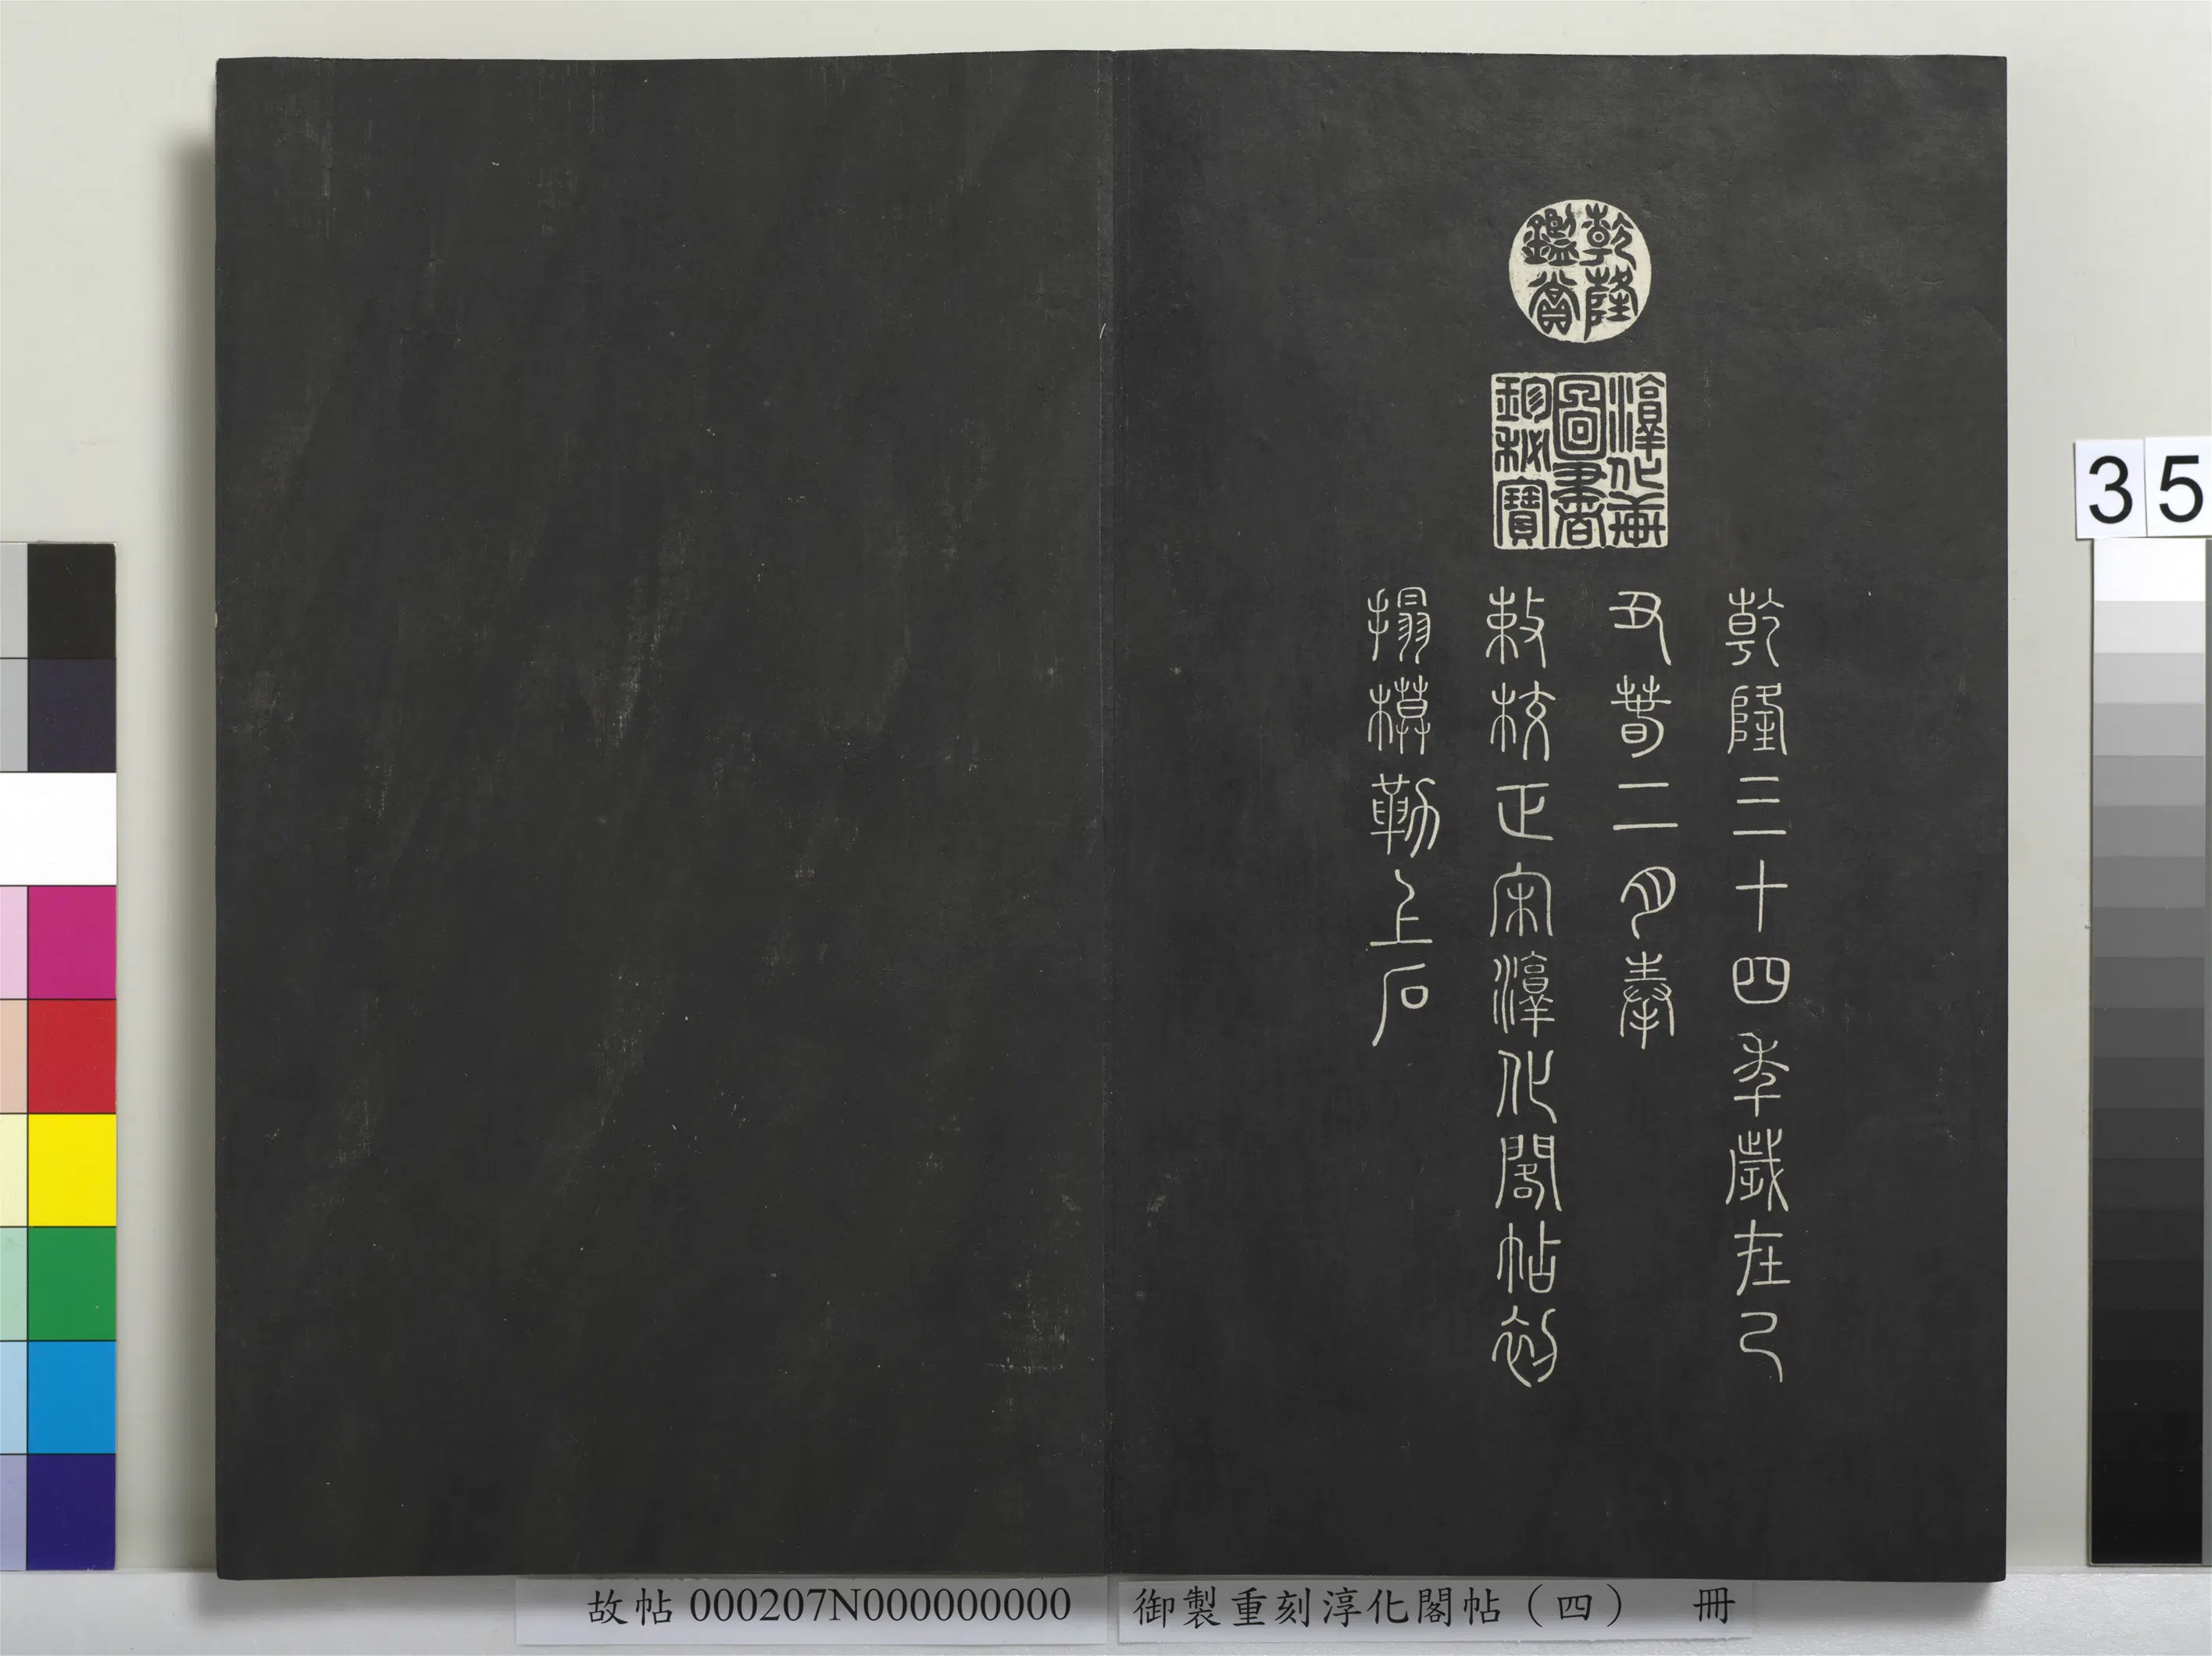 乾隆鑑賞
淳化軒
圖書
珍秘寶
乾隆三十四年歲在己
丑春二月奉
敕校正宋淳化閣帖初
搨模勒上石
35
故帖 000207N000000000
御製重刻淳化閣帖（四） 冊